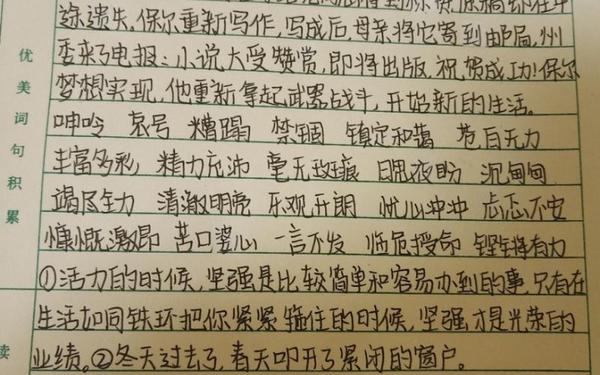 途遗失。保尔重新写作,写成后,母亲将它寄到邮局,州
委来了电报:小说大受赞赏,即将出版,祝贺成功!保尔
梦想实现,他重新拿起武器战斗,开始新的生活。
呻吟 哀号 糟蹋 禁锢 镇定和蔼 苍白无力
丰富多彩 精力充沛 毫无斑痕 日思夜盼 沉甸甸
竭尽全力 清澈明亮 乐观开朗 忧心冲冲 忐忑不安
慷慨激昂 苦口婆心 一言不发 临危授命 铿锵有力
①活力的时候,坚强是比较简单和容易办到的事,只有在
生活如同铁环把你紧紧箍住的时候,坚强才是光荣的
业绩。②冬天过去了,春天叩开了紧闭的窗户。
优美词句积累
读